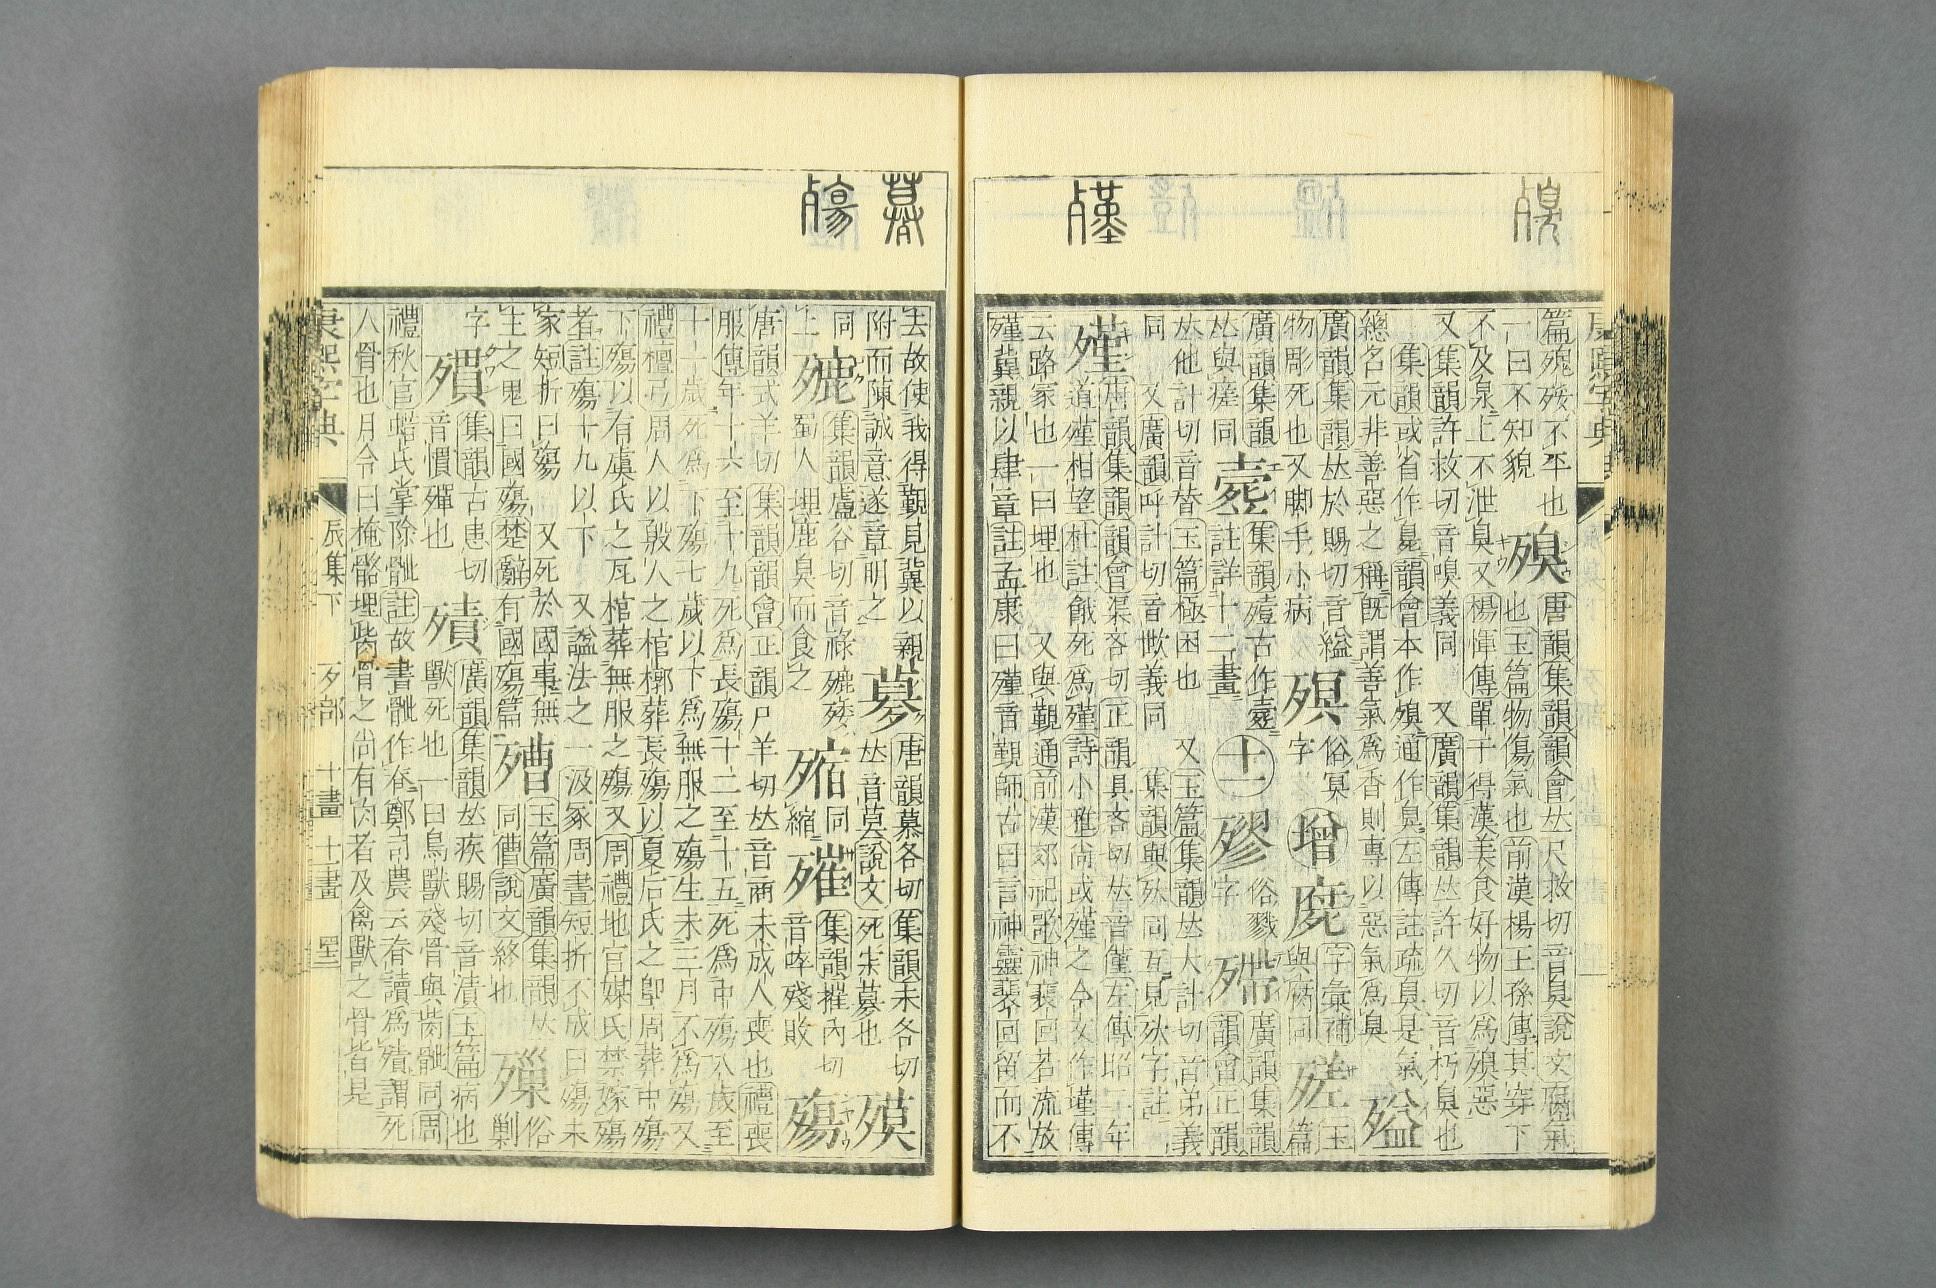 篇殠殗不平也
一曰不知貌
殠
唐韻集韻韻會𠀤尺救切音臭說文腐氣
也玉篇物傷氣也前漢楊王孫傳其穿下
不及泉上不泄臭又楊惲傳單于得漢美食好物以爲殠惡
又集韻許救切音嗅義同 又廣韻集韻𠀤許久切音朽臭也
集韻或省作臭韻會本作殠通作臭左傳註疏臭是氣
總名元非善惡之稱旣謂善氣爲香則專以惡氣爲臭
殈
廣韻集韻𠀤於賜切音縊
物彫死也又脚手小病
殟
俗冥字
增
字彙補與病同
玉篇
廣韻集韻
𠀤與瘥同
集韻殪古作壼
註詳十二畫
十一
殬
俗戮字
殢
廣韻集韻韻會正韻
𠀤他計切音替玉篇極困也 又玉篇集韻𠀤大計切音弟義
同 又廣韻呼計切音欪義同 集韻與殀同互見殀字註
殣
唐韻集韻韻會渠吝切正韻具吝切𠀤音僅左傳昭二年
道殣相望杜註餓死爲殣詩小雅尚或殣之今文作墐傳
云路冢也一曰埋也 又與覲通前漢郊祀歌神裴回若流放
殣冀親以肆章註孟康曰殣音覲師古曰言神靈裴回留而不
去故使我得覲見冀以親
附而陳誠意遂章明之
募
唐韻慕各切集韻末各切
𠀤音莫說文死宗募也
殦
同上
漉
集韻盧谷切音祿殰殗
蜀人埋鹿臭而食之
殐
同縮
㱖
集韻摧內切
音啐殘敗
殤
唐韻式羊切集韻韻會正韻尸羊切𠀤音商未成人喪也禮喪
服傳年十六至十九死爲長殤十二至十五死爲中殤八歲至
十一歲死爲下殤七歲以下爲無服之殤生未三月不爲殤又
禮檀弓周人以殷人之棺槨葬長殤以夏后氏之堲周葬中殤
下殤以有虞氏之瓦棺葬無服之殤又周禮地官媒氏禁嫁殤
者註殤十九以下 又諡法之一汲冢周書短折不成曰殤未
家短折曰殤 又死於國事無
主之鬼曰國殤楚辭有國殤篇
㱮
玉篇廣韻集韻𠀤
同傮說文終也
俗剿字
殨
集韻古患切
音慣殫也
㱴
廣韻集韻𠀤疾賜切音漬玉篇病也
獸死也一曰鳥獸殘骨與胔骴同周
禮秋官蜡氏掌除骴註故書骴作脊鄭司農云脊讀爲殰謂死
人骨也月令曰掩骼埋胔骨之尚有肉者及禽獸之骨皆是
康熙字典
辰集下
歹部
十畫
十一畫